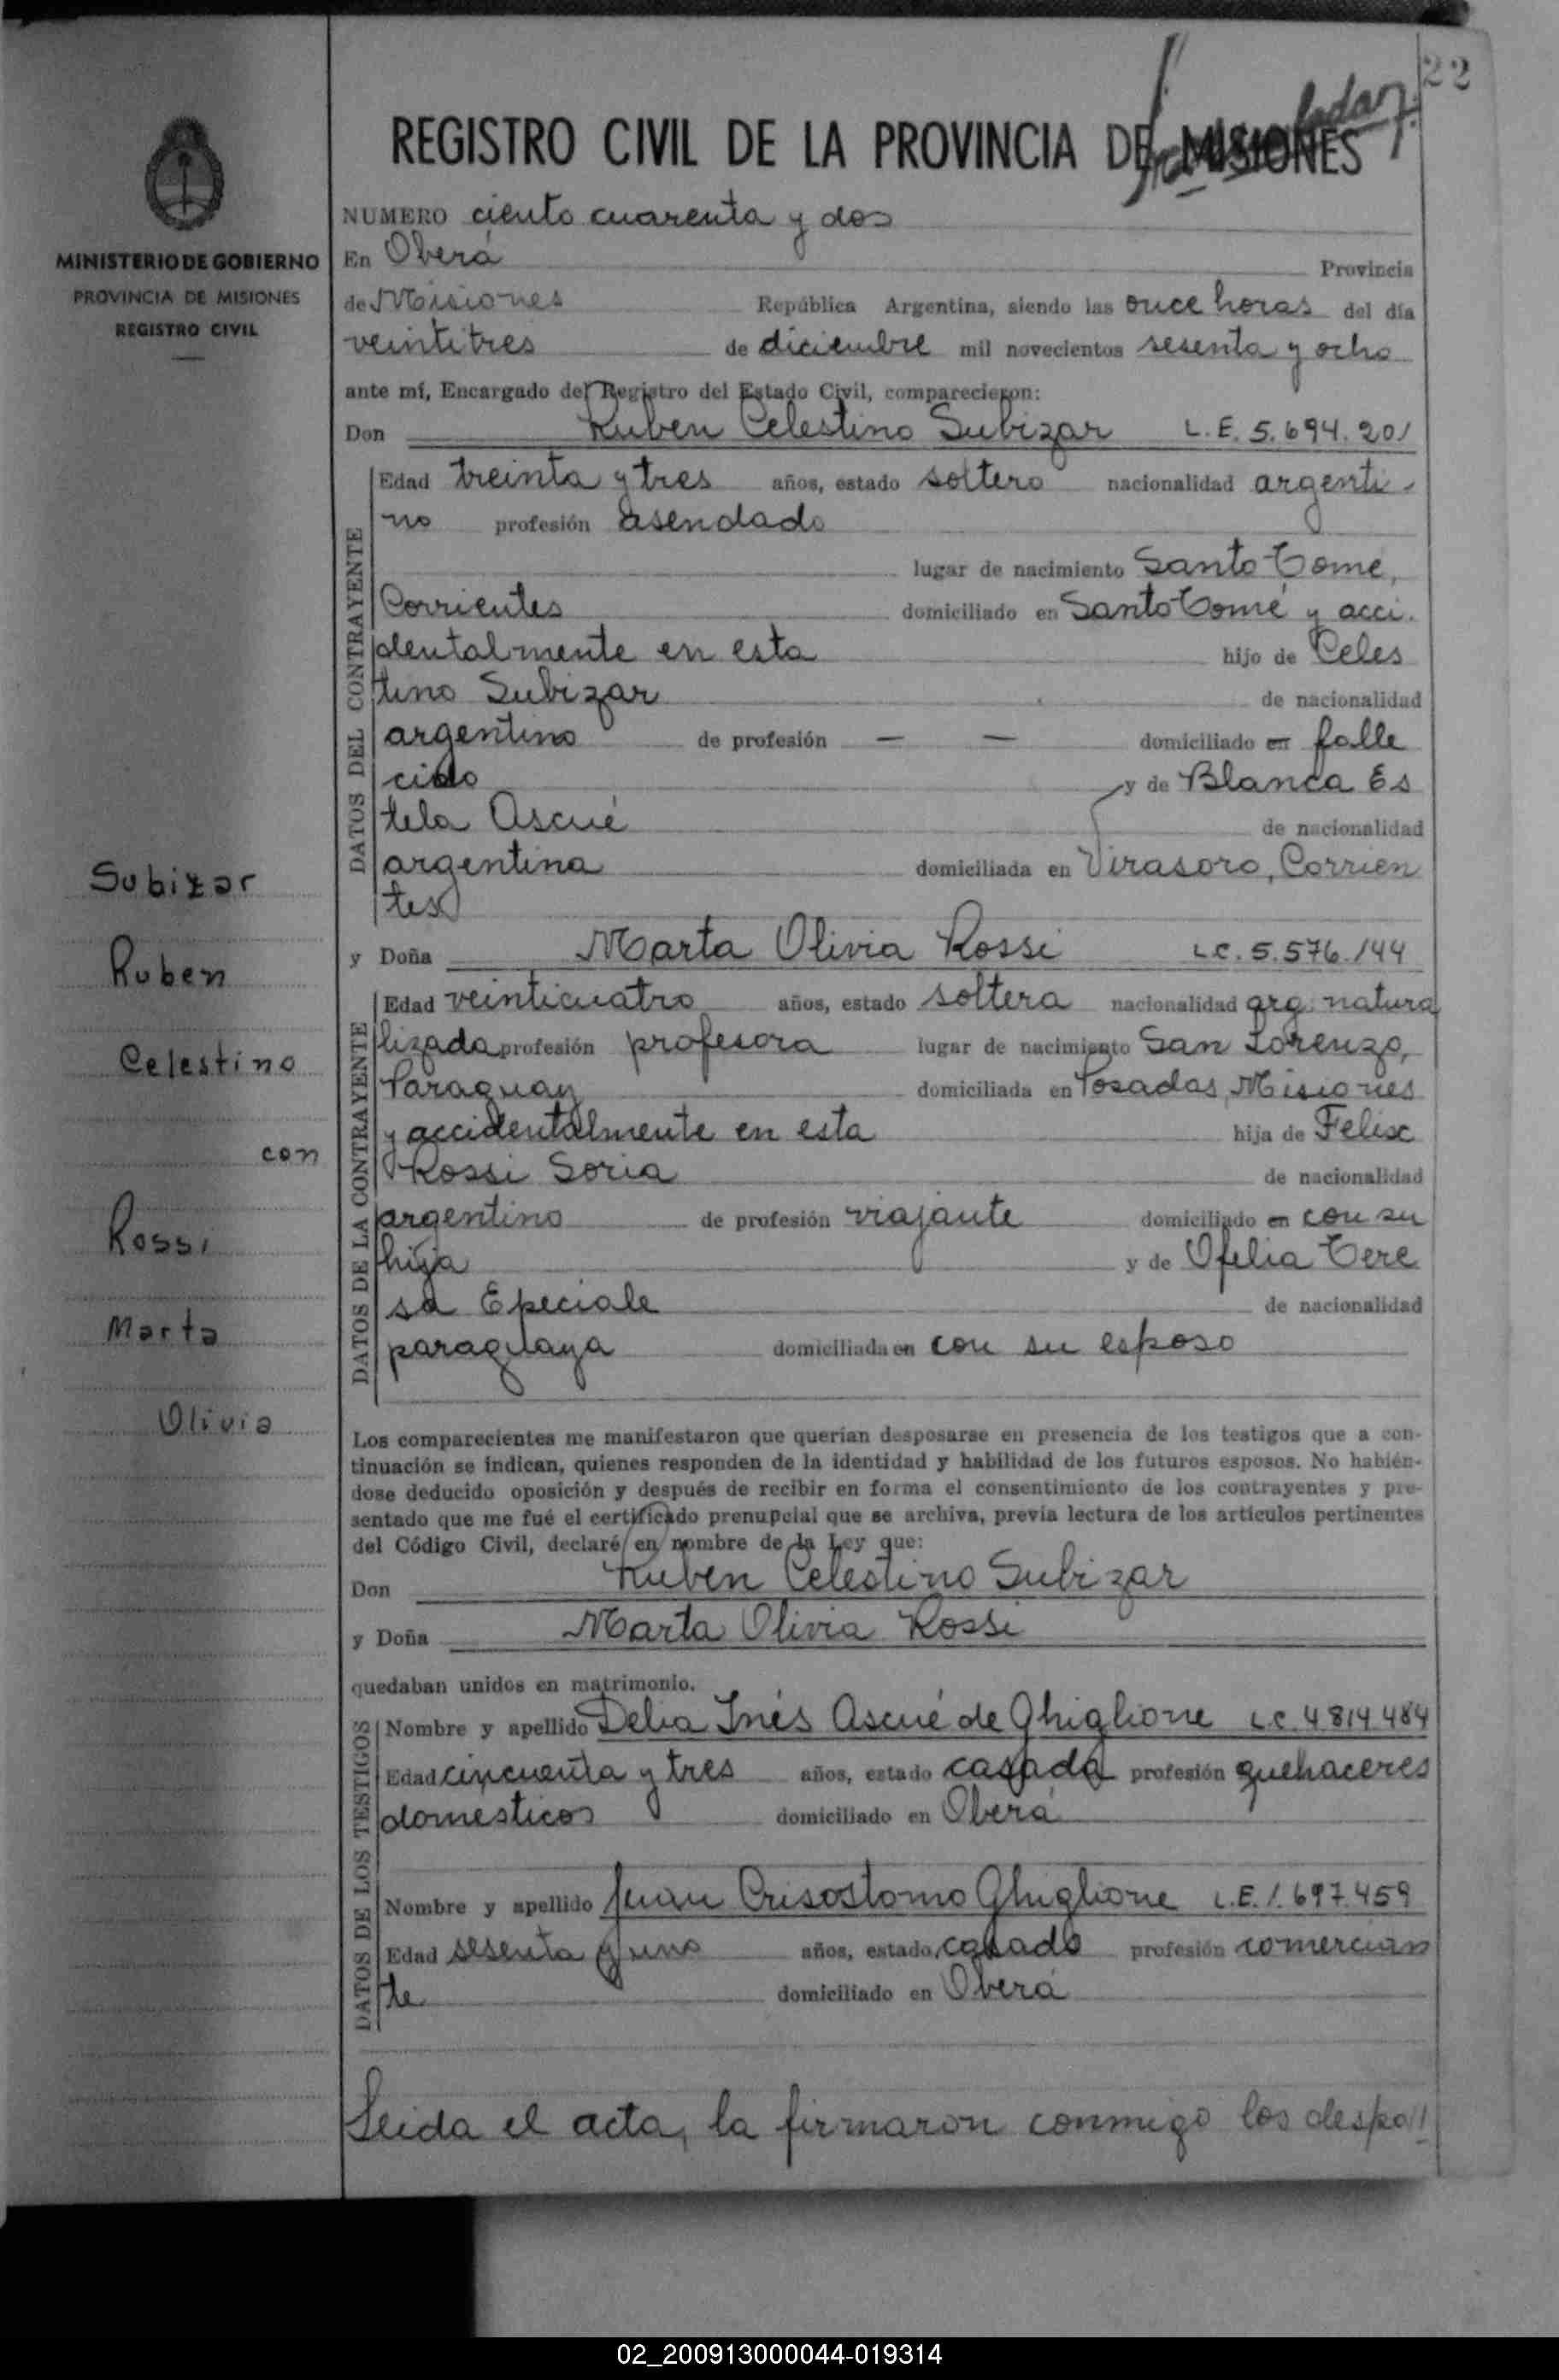 22
REGISTRO CIVIL DE LA PROVINCIA DE MISIONES
MINISTERIO DE GOBIERNO
PROVINCIA DE MISIONES
REGISTRO CIVIL
NUMERO ciento cuarenta y dos
En Oberá Provincia
de Misiones República Argentina, siendo las once horas del día
veintitres de diciembre mil novecientos sesenta y ocho
ante mí, Encargado del Registro del Estado Civil, comparecieron:
Don Ruben Celestino Subizar L.E. 5.694.201
DATOS DEL CONTRAYENTE
Edad treinta y tres años, estado soltero nacionalidad argenti-
no profesión asendado
lugar de nacimiento Santo Tome,
Corrientes domiciliado en Santo Tomé y acci.
dentalmente en esta hijo de Celes
tino Subizar de nacionalidad
argentino de profesión — — domiciliado en falle
cido y de Blanca Es
tela Ascué de nacionalidad
argentina domiciliada en Virasoro, Corrien
tes
y Doña Marta Olivia Rossi L.C. 5.576.144
DATOS DE LA CONTRAYENTE
Edad veinticuatro años, estado soltera nacionalidad arg. natura
lizada profesión profesora lugar de nacimiento San Lorenzo,
Paraguay domiciliada en Posadas, Misiones
y accidentalmente en esta hija de Felix
Rossi Soria de nacionalidad
argentino de profesión viajante domiciliado en con su
hija y de Ofelia Tere
sa Epeciale de nacionalidad
paraguaya domiciliada en con su esposo
Los comparecientes me manifestaron que querían desposarse en presencia de los testigos que a con-
tinuación se indican, quienes responden de la identidad y habilidad de los futuros esposos. No habién-
dose deducido oposición y después de recibir en forma el consentimiento de los contrayentes y pre-
sentado que me fué el certificado prenupcial que se archiva, previa lectura de los artículos pertinentes
del Código Civil, declaré en nombre de la Ley que:
Don Ruben Celestino Subizar
y Doña Marta Olivia Rossi
quedaban unidos en matrimonio.
DATOS DE LOS TESTIGOS
Nombre y apellido Delia Inés Ascué de Ghiglione L.C. 4814484
Edad cincuenta y tres años, estado casada profesión quehaceres
domesticos domiciliado en Oberá
Nombre y apellido Juan Crisostomo Ghiglione L.E. 1.697.459
Edad sesenta y uno años, estado casado profesión comercian
te domiciliado en Oberá
Leida el acta, la firmaron conmigo los despo//
Subizar
Ruben
Celestino
con
Rossi
Marta
Olivia
02_200913000044-019314